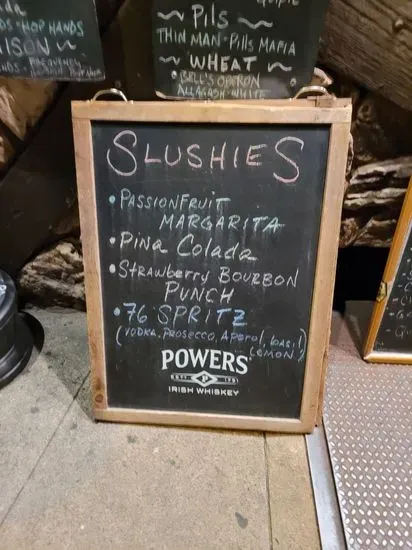 HOP HANDS
ISON
Pils
THIN MAN · Pills MAFIA
WHEAT
BELL'S OBERON
ALLAGASH WHITE
SLUSHIES
• PASSIONFRUIT
MARGARITA
• Pina Colada
• Strawberry BOURBON
PUNCH
• 76 SPRITZ
(VODKA, PROSECCO, Aperol, basil,
LEMON)
POWERS
ESTD P 1791
IRISH WHISKEY